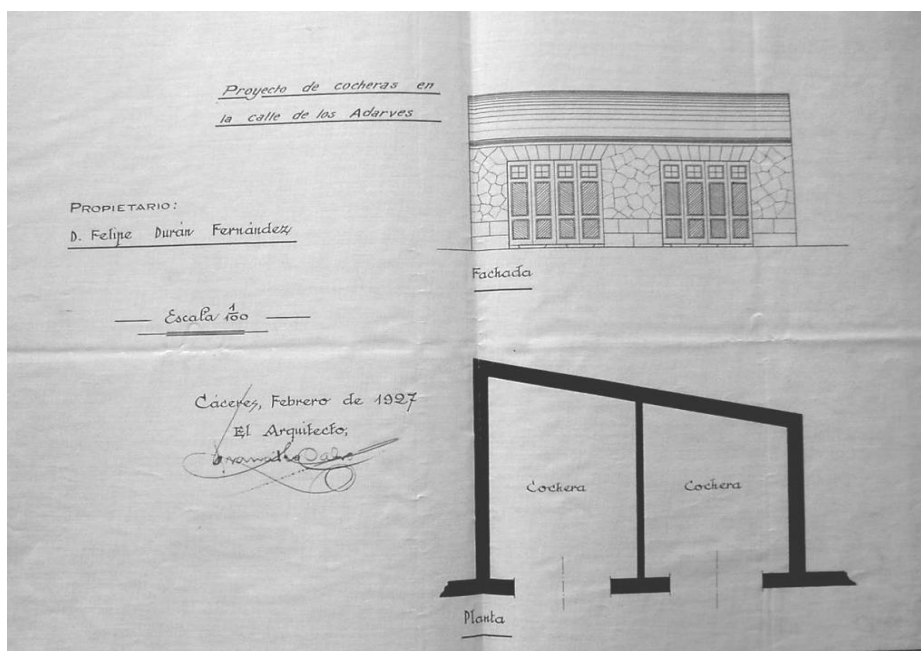 Proyecto de cocheras en
la calle de los Adarves
PROPIETARIO:
D. Felipe Durán Fernández
Escala 1/100
Cáceres, Febrero de 1927
El Arquitecto,
Fachada
Cochera
Cochera
Planta